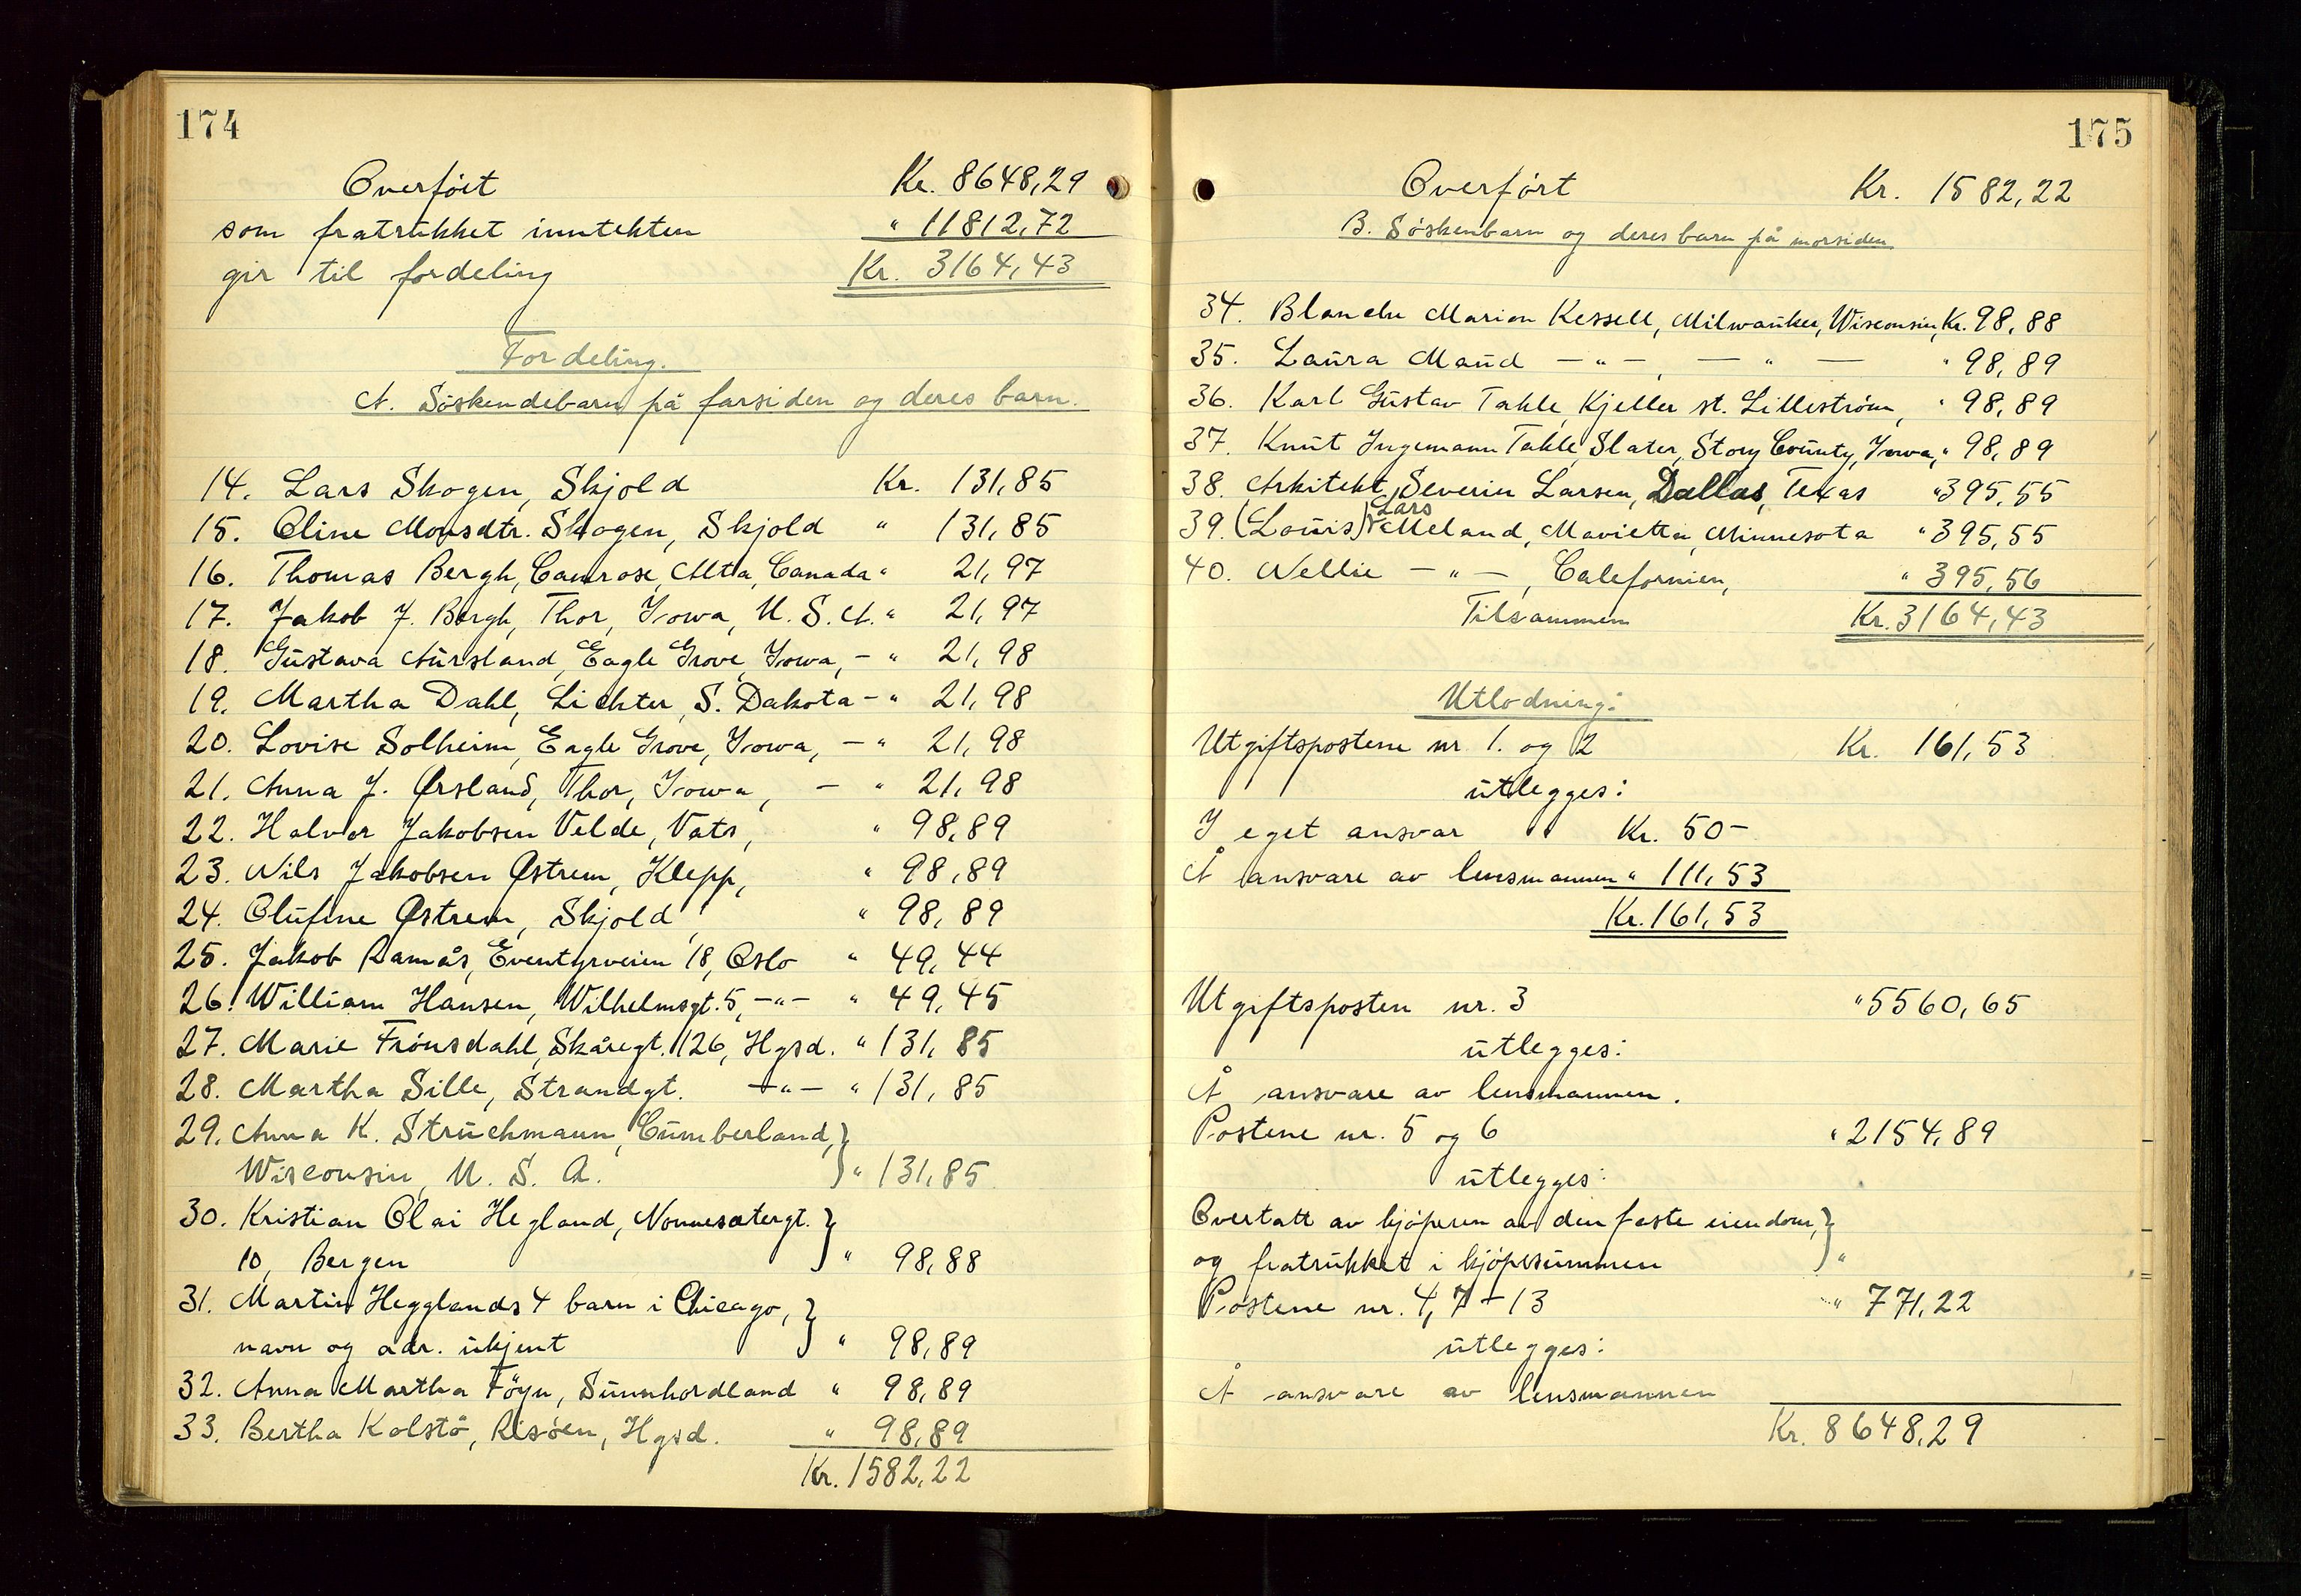 174
Overført Kr. 8648,29
som fratrukket inntekten " 11812,72
gir til fordeling Kr. 3164,43
Fordeling.
A. Söskendebarn på farsiden og deres barn.
14. Lars Skogen, Skjold Kr. 131,85
15. Oline Monsdtr. Skogen, Skjold " 131,85
16. Thomas Bergh, Camrose, Alta, Canada " 21,97
17. Jakob J. Bergh, Thor, Iowa, U. S. A. " 21,97
18. Gustava Aursland, Eagle Grove, Iowa, - " 21,98
19. Martha Dahl, Lichter, S. Dakota - " 21,98
20. Lovise Solheim, Eagle Grove, Iowa, - " 21,98
21. Anna J. Ørsland, Thor, Iowa, - " 21,98
22. Halvor Jakobsen Velde, Vats, " 98,89
23. Nils Jakobsen Østrem, Klepp, " 98,89
24. Olufine Østrem, Skjold, " 98,89
25. Jakob Ramås, Eventyrveien 18, Oslo " 49,44
26. William Hansen, Wilhelmsgt. 5, -"- " 49,45
27. Marie Frönsdahl, Skåregt. 126, Hgsd. " 131,85
28. Martha Sille, Strandgt. -"- " 131,85
29. Anna K. Struchmann, Cumberland,
Wisconsin, U. S. A. " 131,85
30. Kristian Olai Hegland, Nonnesetergt.
10, Bergen " 98,88
31. Martin Hegglands 4 barn i Chicago,
navn og adr. ukjent " 98,89
32. Anna Martha Föyn, Sunnhordland " 98,89
33. Bertha Kolstö, Risöen, Hgsd. " 98,89
Kr. 1582,22
175
Overført Kr. 1582,22
B. Søskenbarn og deres barn på morsiden
34. Blanche Marion Kessell, Milwaukee, Wisconsin, Kr. 98,88
35. Laura Maud -"-, - " - " 98,89
36. Karl Gustav Takle, Kjeller st. Lillestrøm, " 98,89
37. Knut Ingemann Takle, Slater, Story County, Iowa, " 98,89
38. Arkitekt Severin Larsen, Dallas, Texas " 395,55
39. (Louis) Lars Meland, Marietta, Minnesota " 395,55
40. Nellie -"-, Calefornien, " 395,56
Tilsammen Kr. 3164,43
Utlodning:
Utgiftspostene nr. 1. og 2 Kr. 161,53
utlegges:
I eget ansvar Kr. 50-
Å ansvare av lensmannen " 111,53
Kr. 161,53
Utgiftsposten nr. 3 " 5560,65
utlegges:
Å ansvare av lensmannen.
Postene nr. 5 og 6 " 2154,89
utlegges:
Overtatt av kjøperen av den faste eiendom,
og fratrukket i kjøpesummen "
Postene nr. 4, 7 - 13 " 771,22
utlegges:
Å ansvare av lensmannen
Kr. 8648,29